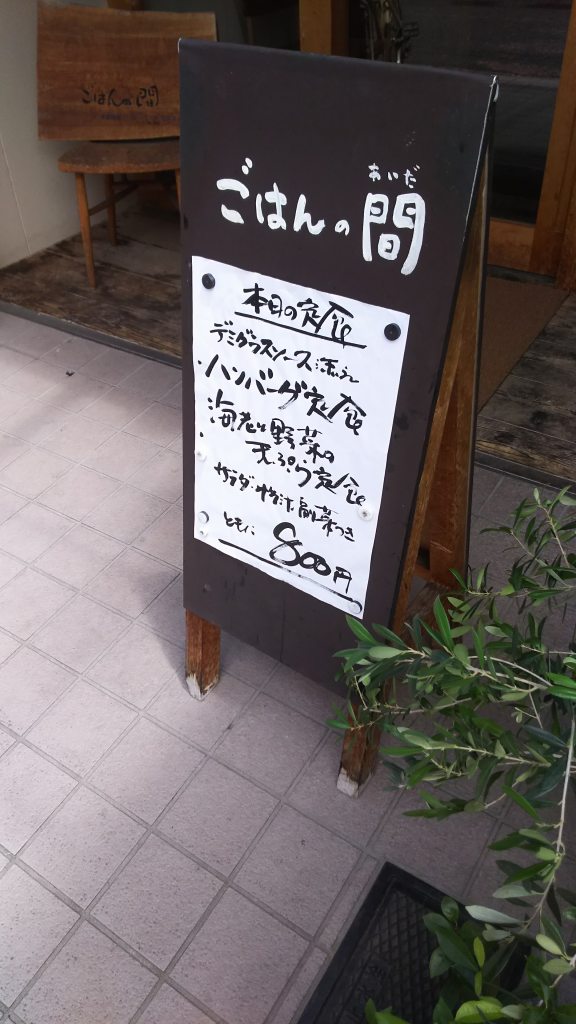 ごはんの間
あいだ
ごはんの間
本日の定食
デミグラスソース
・ハンバーグ定食
・海老と野菜の
天ぷら定食
サラダ・
副菜つき
ともに 800円